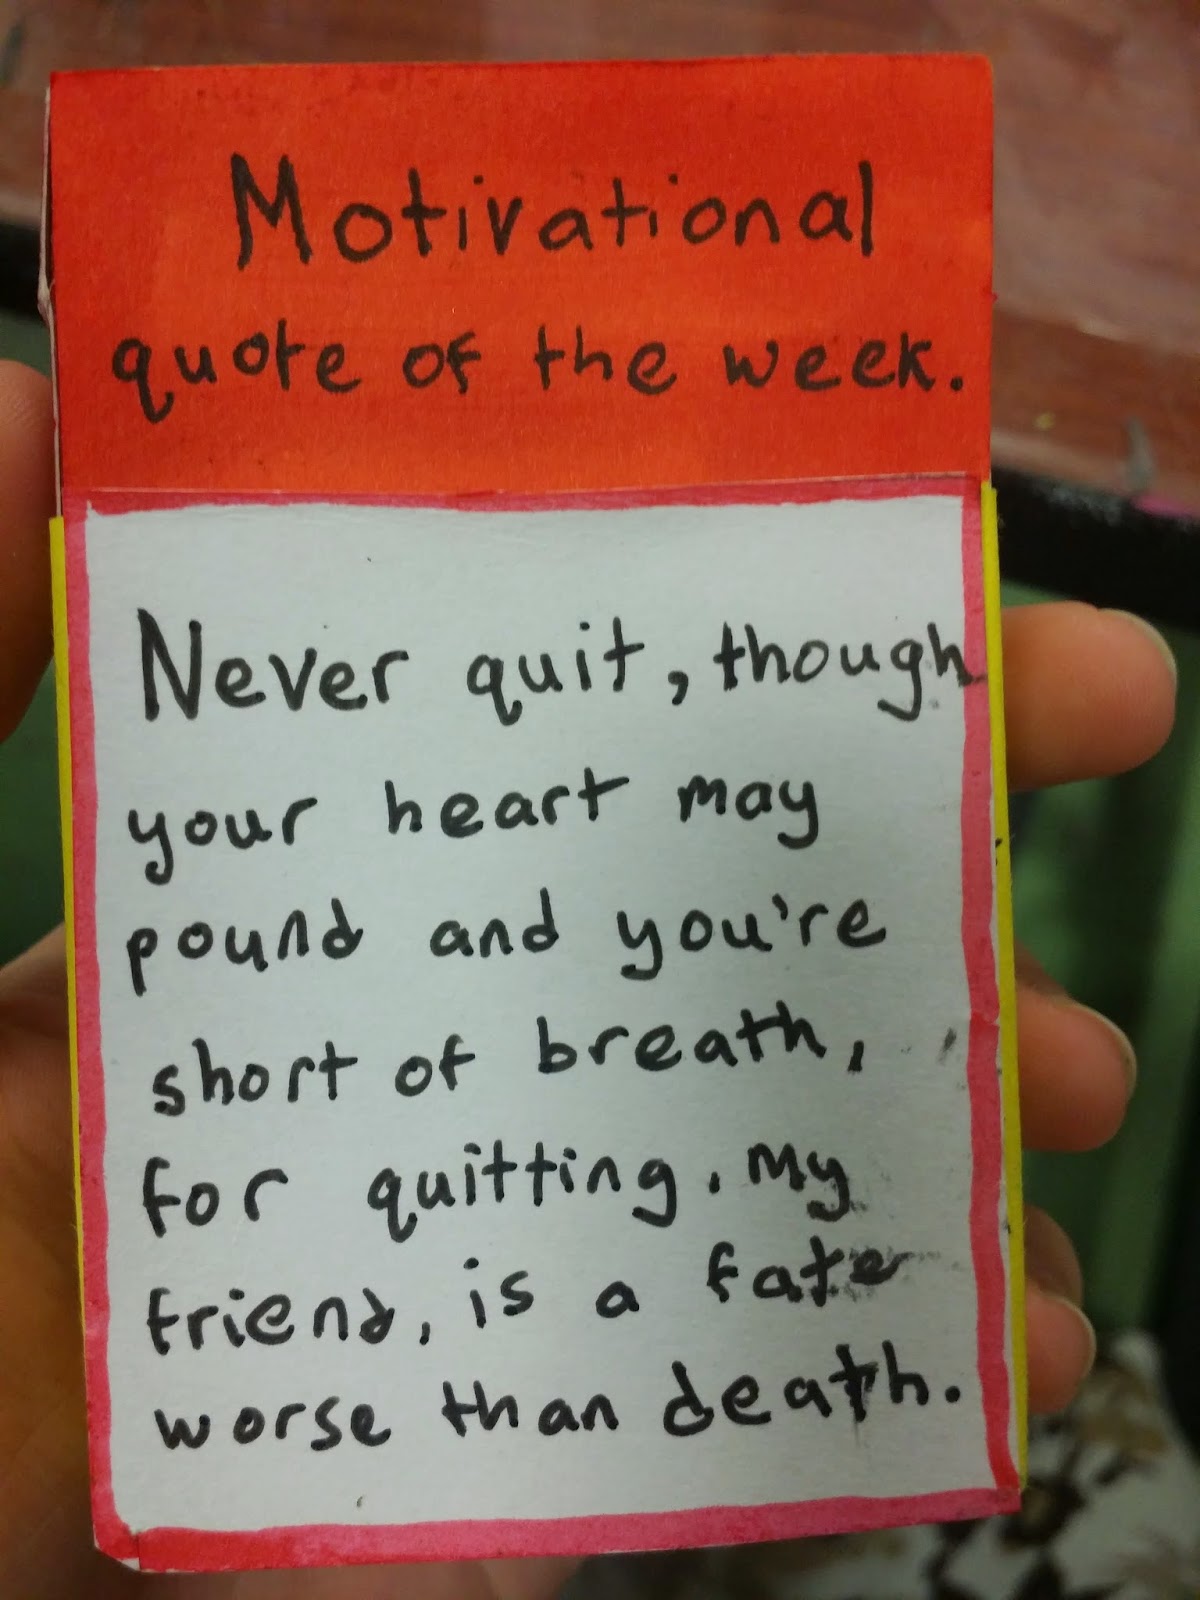 Motivational
quote of the week.
Never quit, though
your heart may
pound and you're
short of breath,
for quitting. My
friend, is a fate
worse than death.